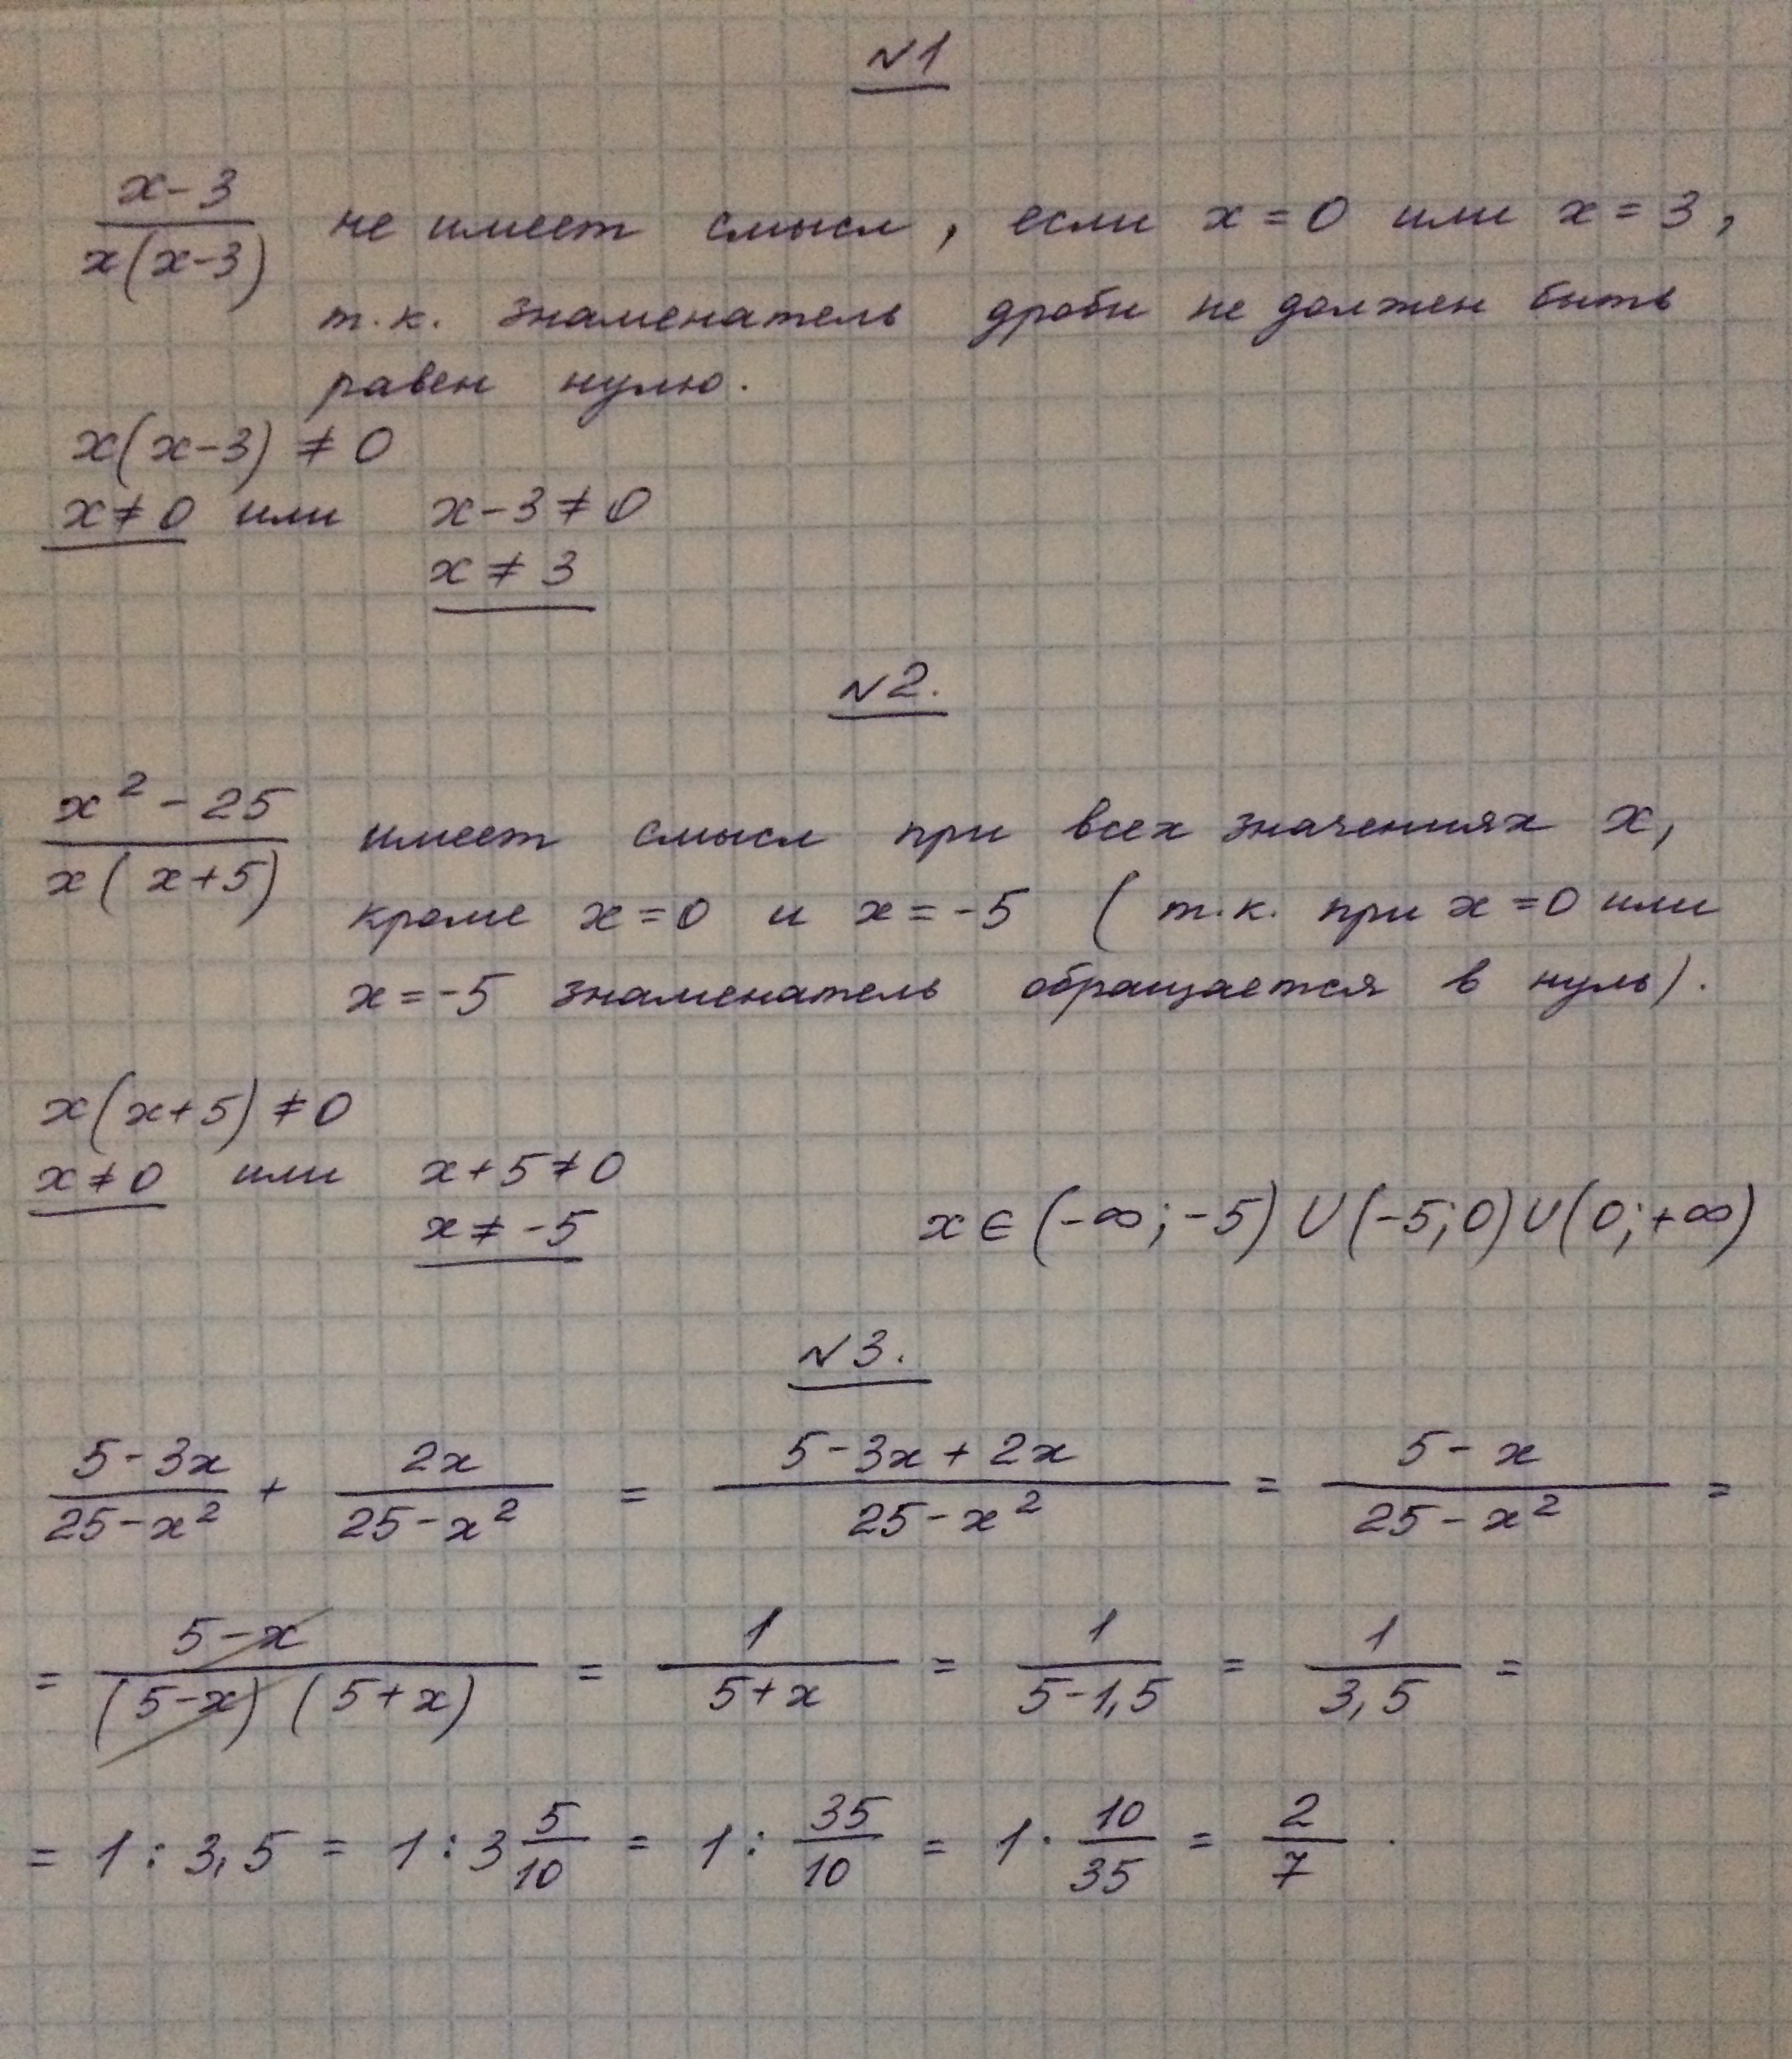 №1
(x-3)/(x(x-3)) не имеет смысл, если x=0 или x=3,
т.к. знаменатель дроби не должен быть
равен нулю.
x(x-3) ≠ 0
x≠0 или x-3≠0
x ≠ 3
№2.
(x²-25)/(x(x+5)) имеет смысл при всех значениях x,
кроме x=0 и x=-5 (т.к. при x=0 или
x=-5 знаменатель обращается в нуль).
x(x+5)≠0
x≠0 или x+5≠0
x≠-5 x∈(-∞;-5)∪(-5;0)∪(0;+∞)
№3.
(5-3x)/(25-x²) + 2x/(25-x²) = (5-3x+2x)/(25-x²) = (5-x)/(25-x²) =
= (5-x)/((5-x)(5+x)) = 1/(5+x) = 1/(5-1,5) = 1/3,5 =
= 1:3,5 = 1:3 5/10 = 1: 35/10 = 1· 10/35 = 2/7.